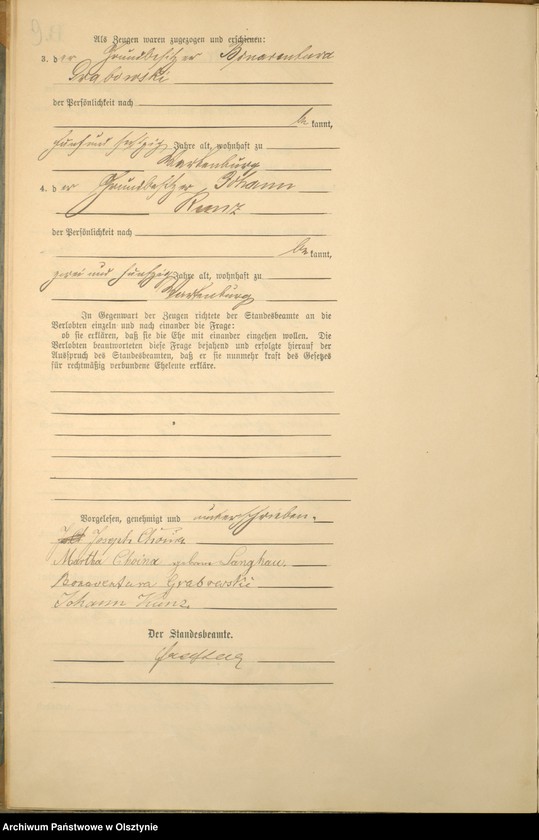 Als Zeugen waren zugezogen und erschienen:
3. der Grundbesitzer
Grabowski
der Persönlichkeit nach
bekannt,
fünfundsechzig Jahre alt, wohnhaft zu
Wartenburg
4. der Grundbesitzer Johann
Kunz
der Persönlichkeit nach
bekannt,
zwei und fünfzig Jahre alt, wohnhaft zu
Wartenburg
In Gegenwart der Zeugen richtete der Standesbeamte an die
Verlobten einzeln und nach einander die Frage:
ob sie erklären, daß sie die Ehe mit einander eingehen wollen. Die
Verlobten beantworteten diese Frage bejahend und erfolgte hierauf der
Ausspruch des Standesbeamten, daß er sie nunmehr kraft des Gesetzes
für rechtmäßig verbundene Eheleute erkläre.
Vorgelesen, genehmigt und unterschrieben.
Joseph Choina
Martha Choina geborne Langkau.
Bonaventura Grabowski
Johann Kunz.
Der Standesbeamte.
Archiwum Państwowe w Olsztynie